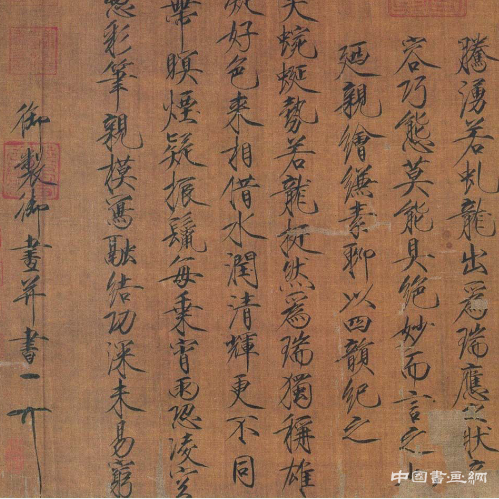 騰湧若虬龍出爲瑞應之狀奇
容巧態莫能具絕妙而言之也
廼親繪縑素聊以四韻紀之
美蜿蜒勢若龍挺然爲瑞獨稱雄
凝好色來相借水潤清輝更不同
帶暝煙疑振鬣每乘宵雨恐凌空
憑彩筆親模寫融結功深未易窮
御製御畫并書
中國書畫網